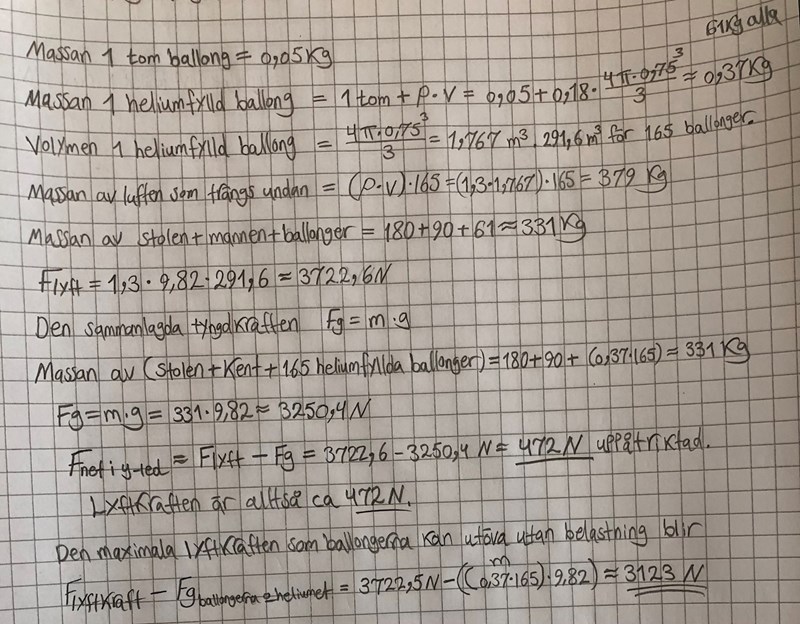 61kg alla
Massan 1 tom ballong = 0,05kg
Massan 1 heliumfylld ballong = 1 tom + ρ·V = 0,05 + 0,18 · 4π·0,75³/3 ≈ 0,37kg
Volymen 1 heliumfylld ballong = 4π·0,75³/3 = 1,767 m³. 291,6m³ för 165 ballonger.
Massan av luften som trängs undan = (ρ·V)·165 = (1,3·1,767)·165 = 379 kg
Massan av stolen + mannen + ballonger = 180 + 90 + 61 ≈ 331 kg
Flyft = 1,3 · 9,82 · 291,6 = 3722,6N
Den sammanlagda tyngdkraften Fg = m·g
Massan av (stolen + Kent + 165 heliumfyllda ballonger) = 180 + 90 + (0,37·165) = 331 kg
Fg = m·g = 331 · 9,82 ≈ 3250,4 N
Fnet i y-led = Flyft − Fg = 3722,6 − 3250,4 N = 472 N uppåtriktad.
Lyftkraften är alltså ca 472 N.
Den maximala lyftkraften som ballongerna kan utöva utan belastning blir
m
Flyftkraft − Fg ballongerna + heliumet = 3722,5N − ((0,37·165)·9,82) ≈ 3123 N